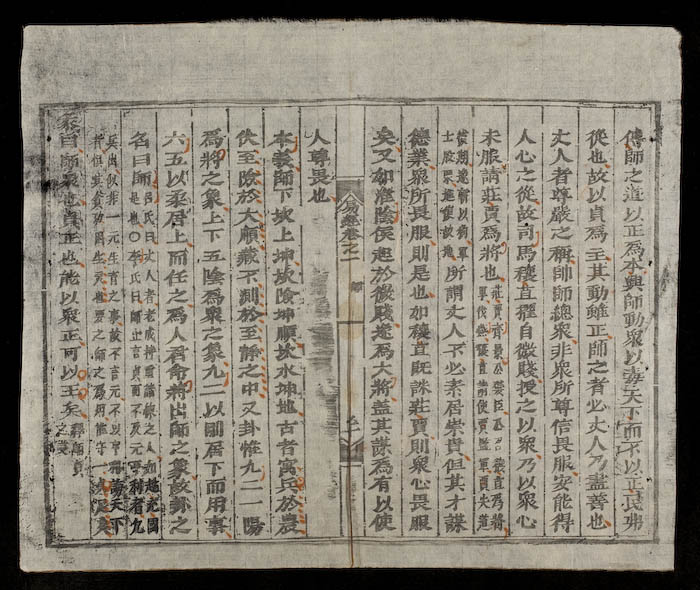 傳師之道以正為本興師動眾以毒天下而不以正民弗
從也故以貞為主其動雖正師之者必丈人乃盡善也
丈人者尊嚴之稱帥師總眾非眾所尊信畏服安能得
人心之從故司馬穰苴擢自微賤授之以眾乃以眾心
未服請莊賈為將也
所謂丈人不必素居崇貴但其才謀
德業眾所畏服則是也如穰苴既誅莊賈則眾心畏服
矣又如淮陰侯起於微賤遂為大將蓋其謀為有以使
人尊畏也
易經卷之一
師
本義師下坎上坤坎險坤順坎水坤地古者寓兵於農
伏至險於大順藏不測於至靜之中又卦惟九二一陽
為將之象上下五陰為眾之象九二以剛居下而用事
六五以柔居上而任之為人君命將出師之象故卦之
名曰師
呂氏曰丈人者老成持重
李氏曰師止言貞而不及元亨利者
彖曰師眾也貞正也能以眾正可以王矣